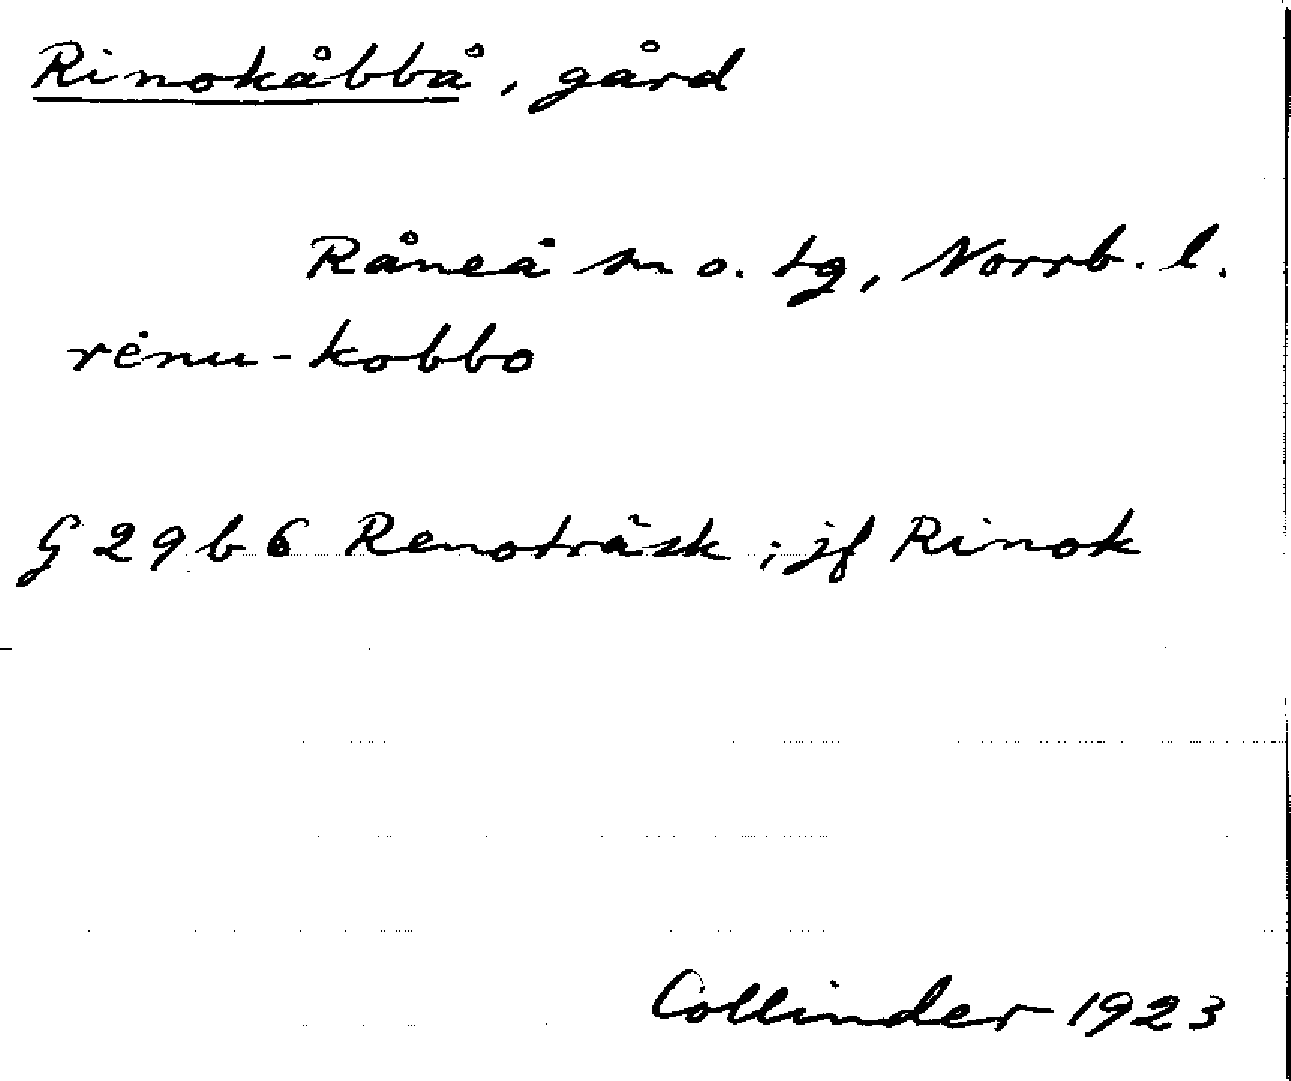 Rinokåbbå, gård
Råneå sn o. tg, Norrb. l.
rėnu-kobbo
G 29 b 6 Renoträsk; jf Rinok
Collinder 1923